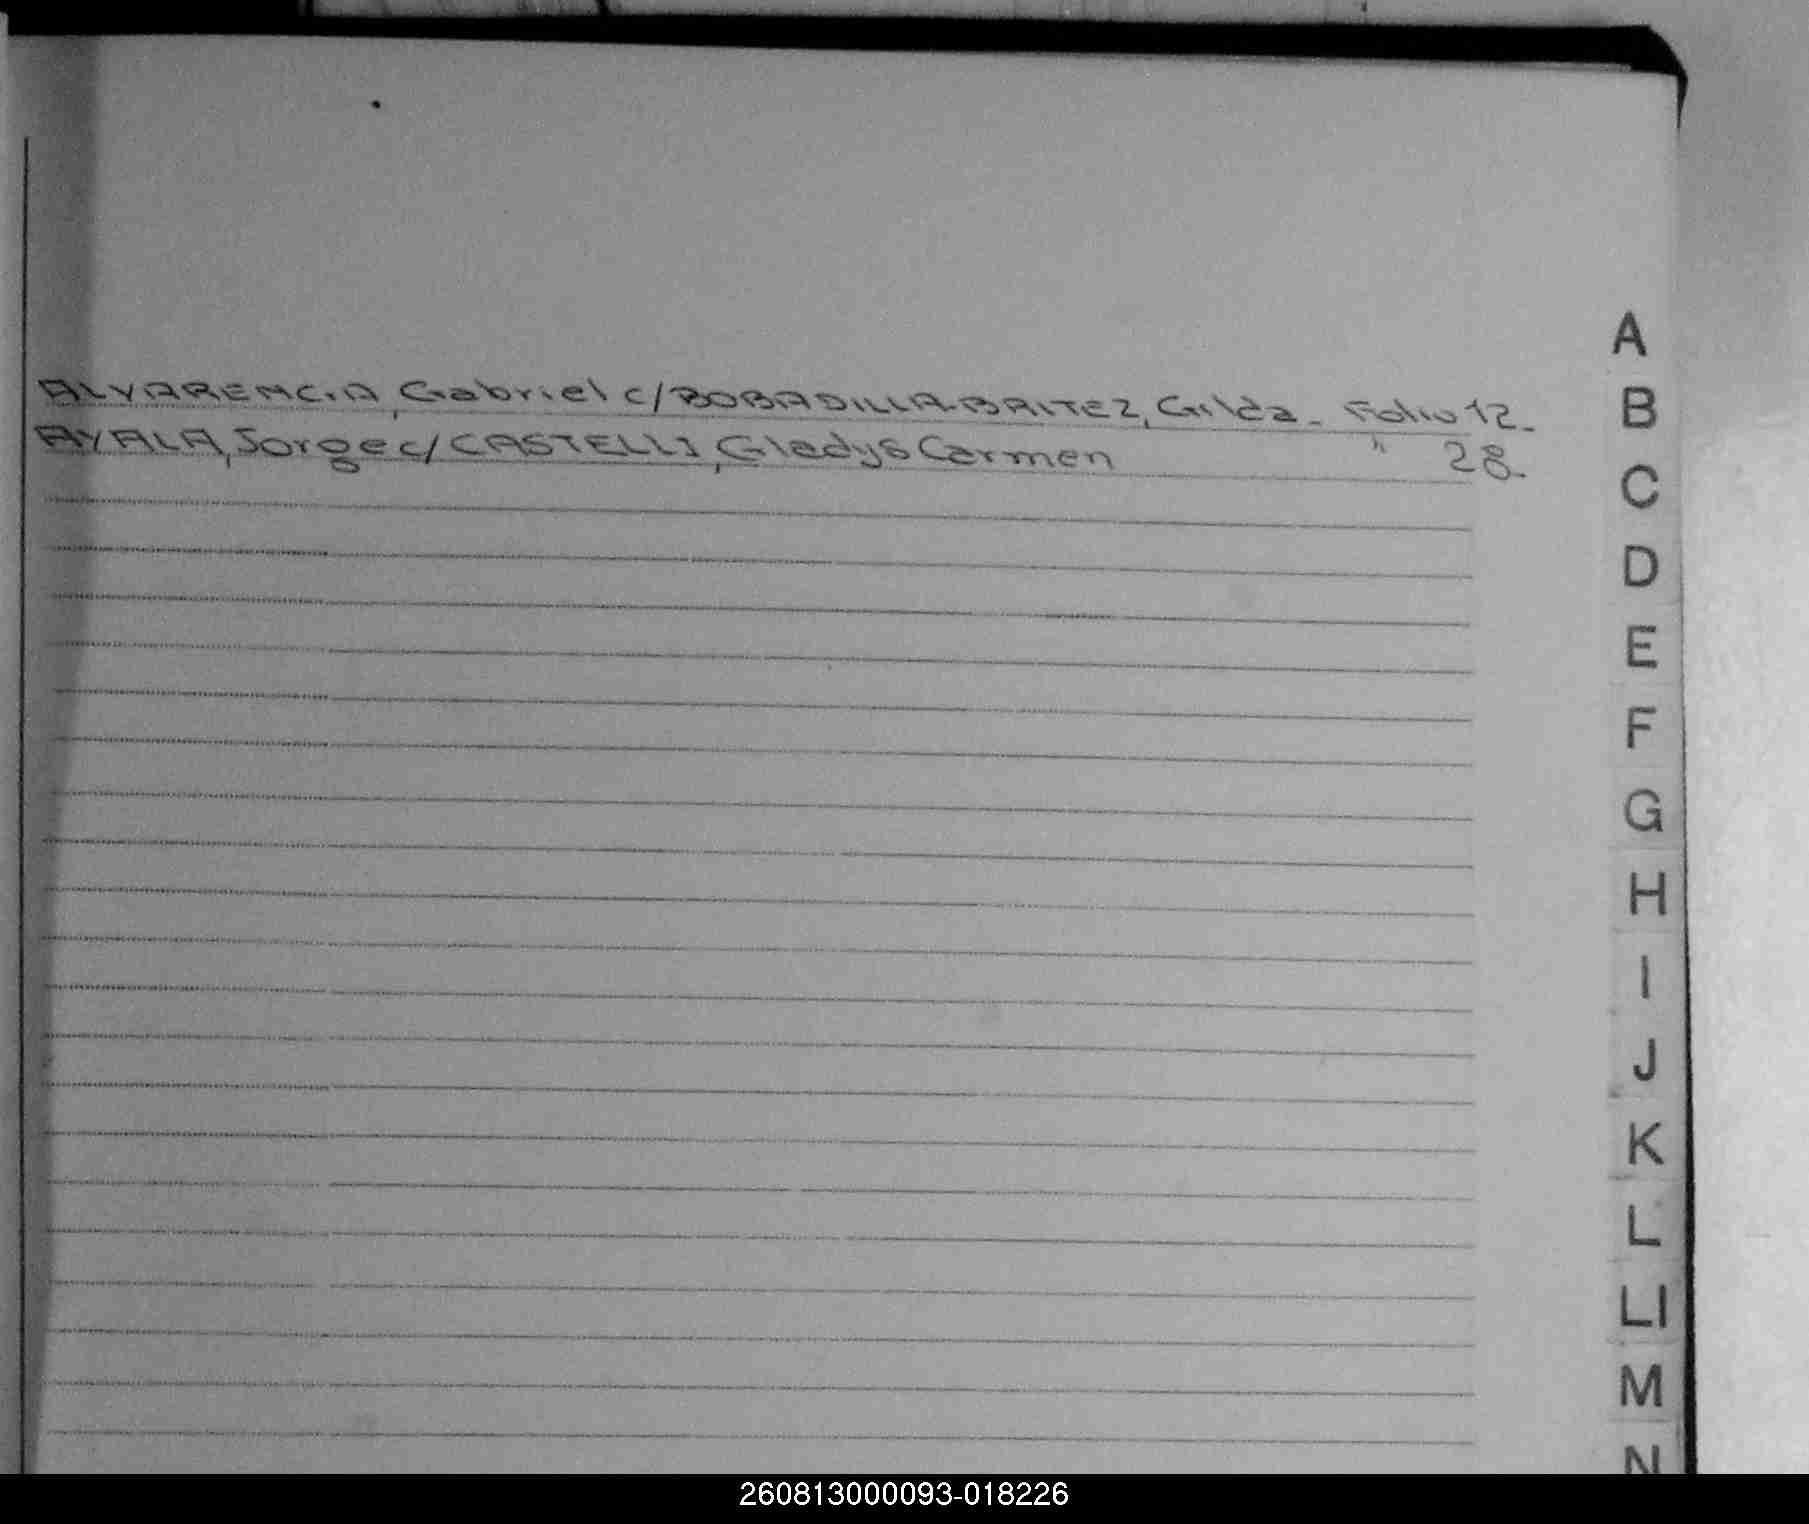 ALVARENGA, Gabriel c/ BOBADILLA BRITEZ, Gilda - Folio 12.
AYALA, Jorge c/ CASTELLI, Gladys Carmen " 28.
A
B
C
D
E
F
G
H
I
J
K
L
Ll
M
N
260813000093-018226